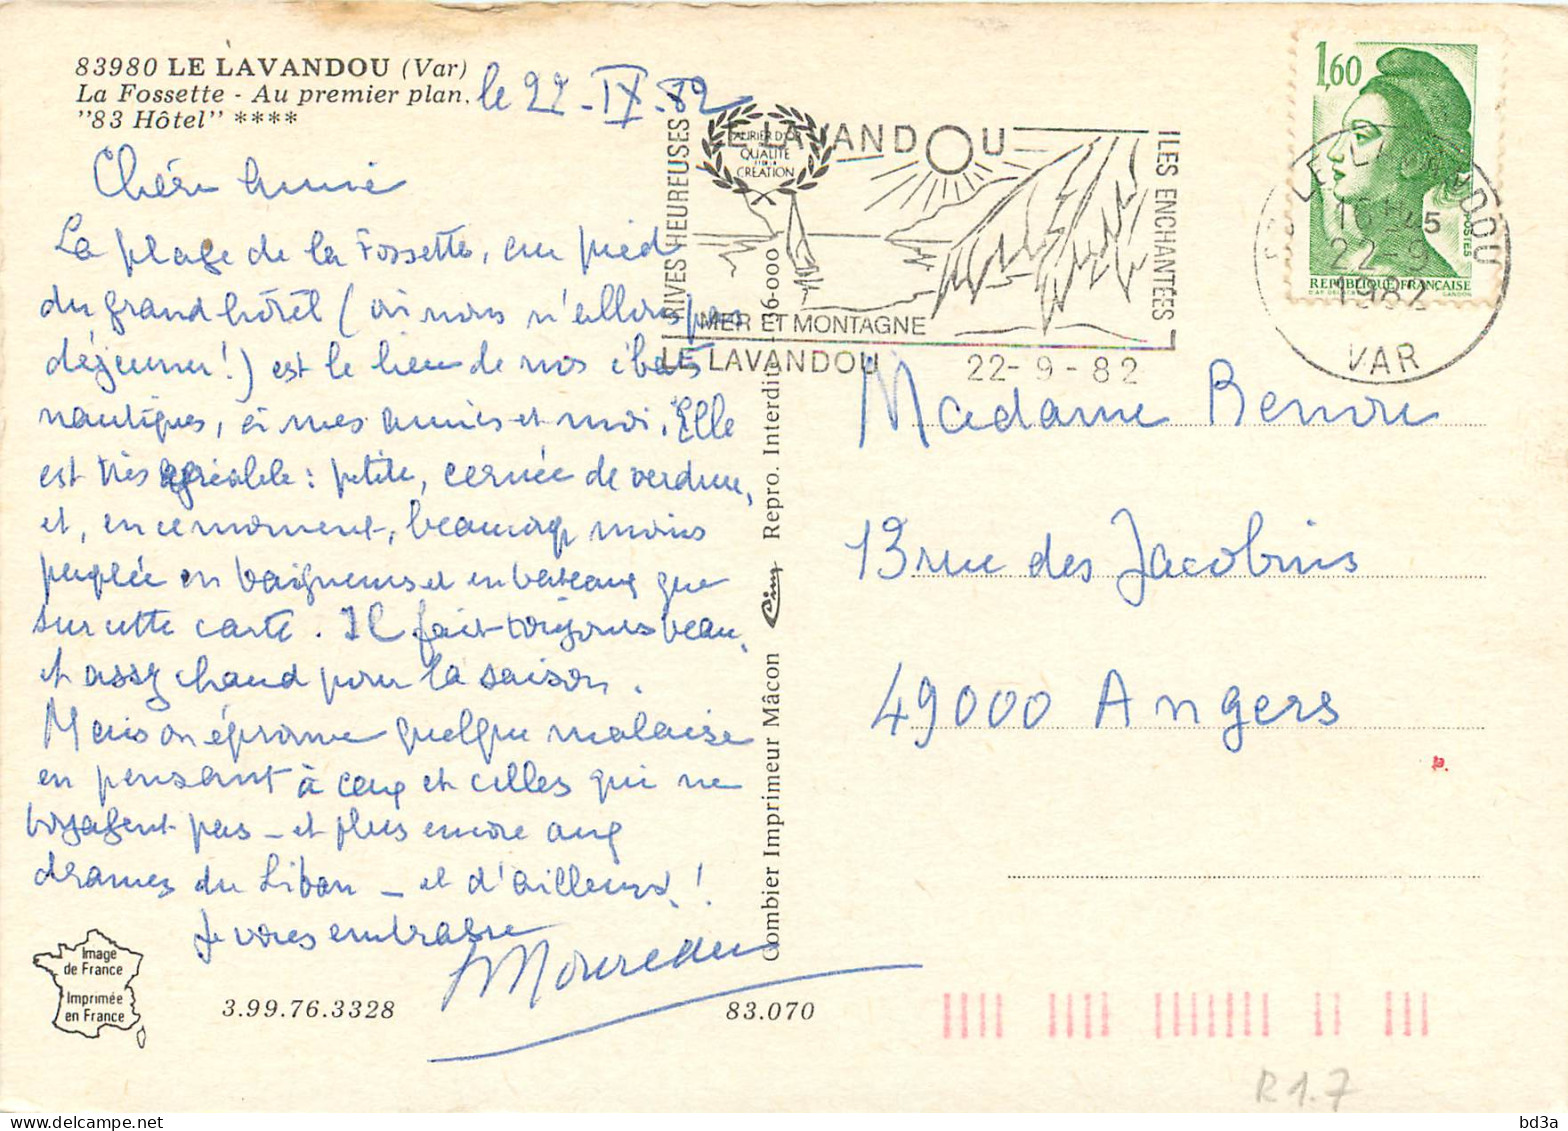 83980 LE LAVANDOU (Var)
La Fossette - Au premier plan.
"83 Hôtel" ****
le 22-IX-82
Chère Annie
La plage de la Fossette, au pied
du grand hôtel (où nous n'allons pas
déjeuner!) est le lieu de nos ébats
nautiques, à mes amies et moi. Elle
est très agréable : petite, cernée de verdure,
et, en ce moment, beaucoup moins
peuplée en baigneurs et en bateaux que
sur cette carte. Il fait toujours beau,
et assez chaud pour la saison.
Mais on éprouve quelque malaise
en pensant à ceux et celles qui ne
voyagent pas - et plus encore aux
drames du Liban - et d'ailleurs !
Je vous embrasse
Image
de France
Imprimée
en France
3.99.76.3328
83.070
Combier Imprimeur Mâcon
Cim
Repro. Interdite
36-000
RIVES HEUREUSES
LE LAVANDOU
LAURIER D'OR
QUALITÉ
CRÉATION
ILES ENCHANTÉES
MER ET MONTAGNE
LE LAVANDOU
22-9-82
1,60
POSTES
REPUBLIQUE FRANÇAISE
GANDON
LE LAVANDOU
16H45
22-9
1982
VAR
Madame Benon
13 rue des Jacobins
49000 Angers
R1.7
bd3a